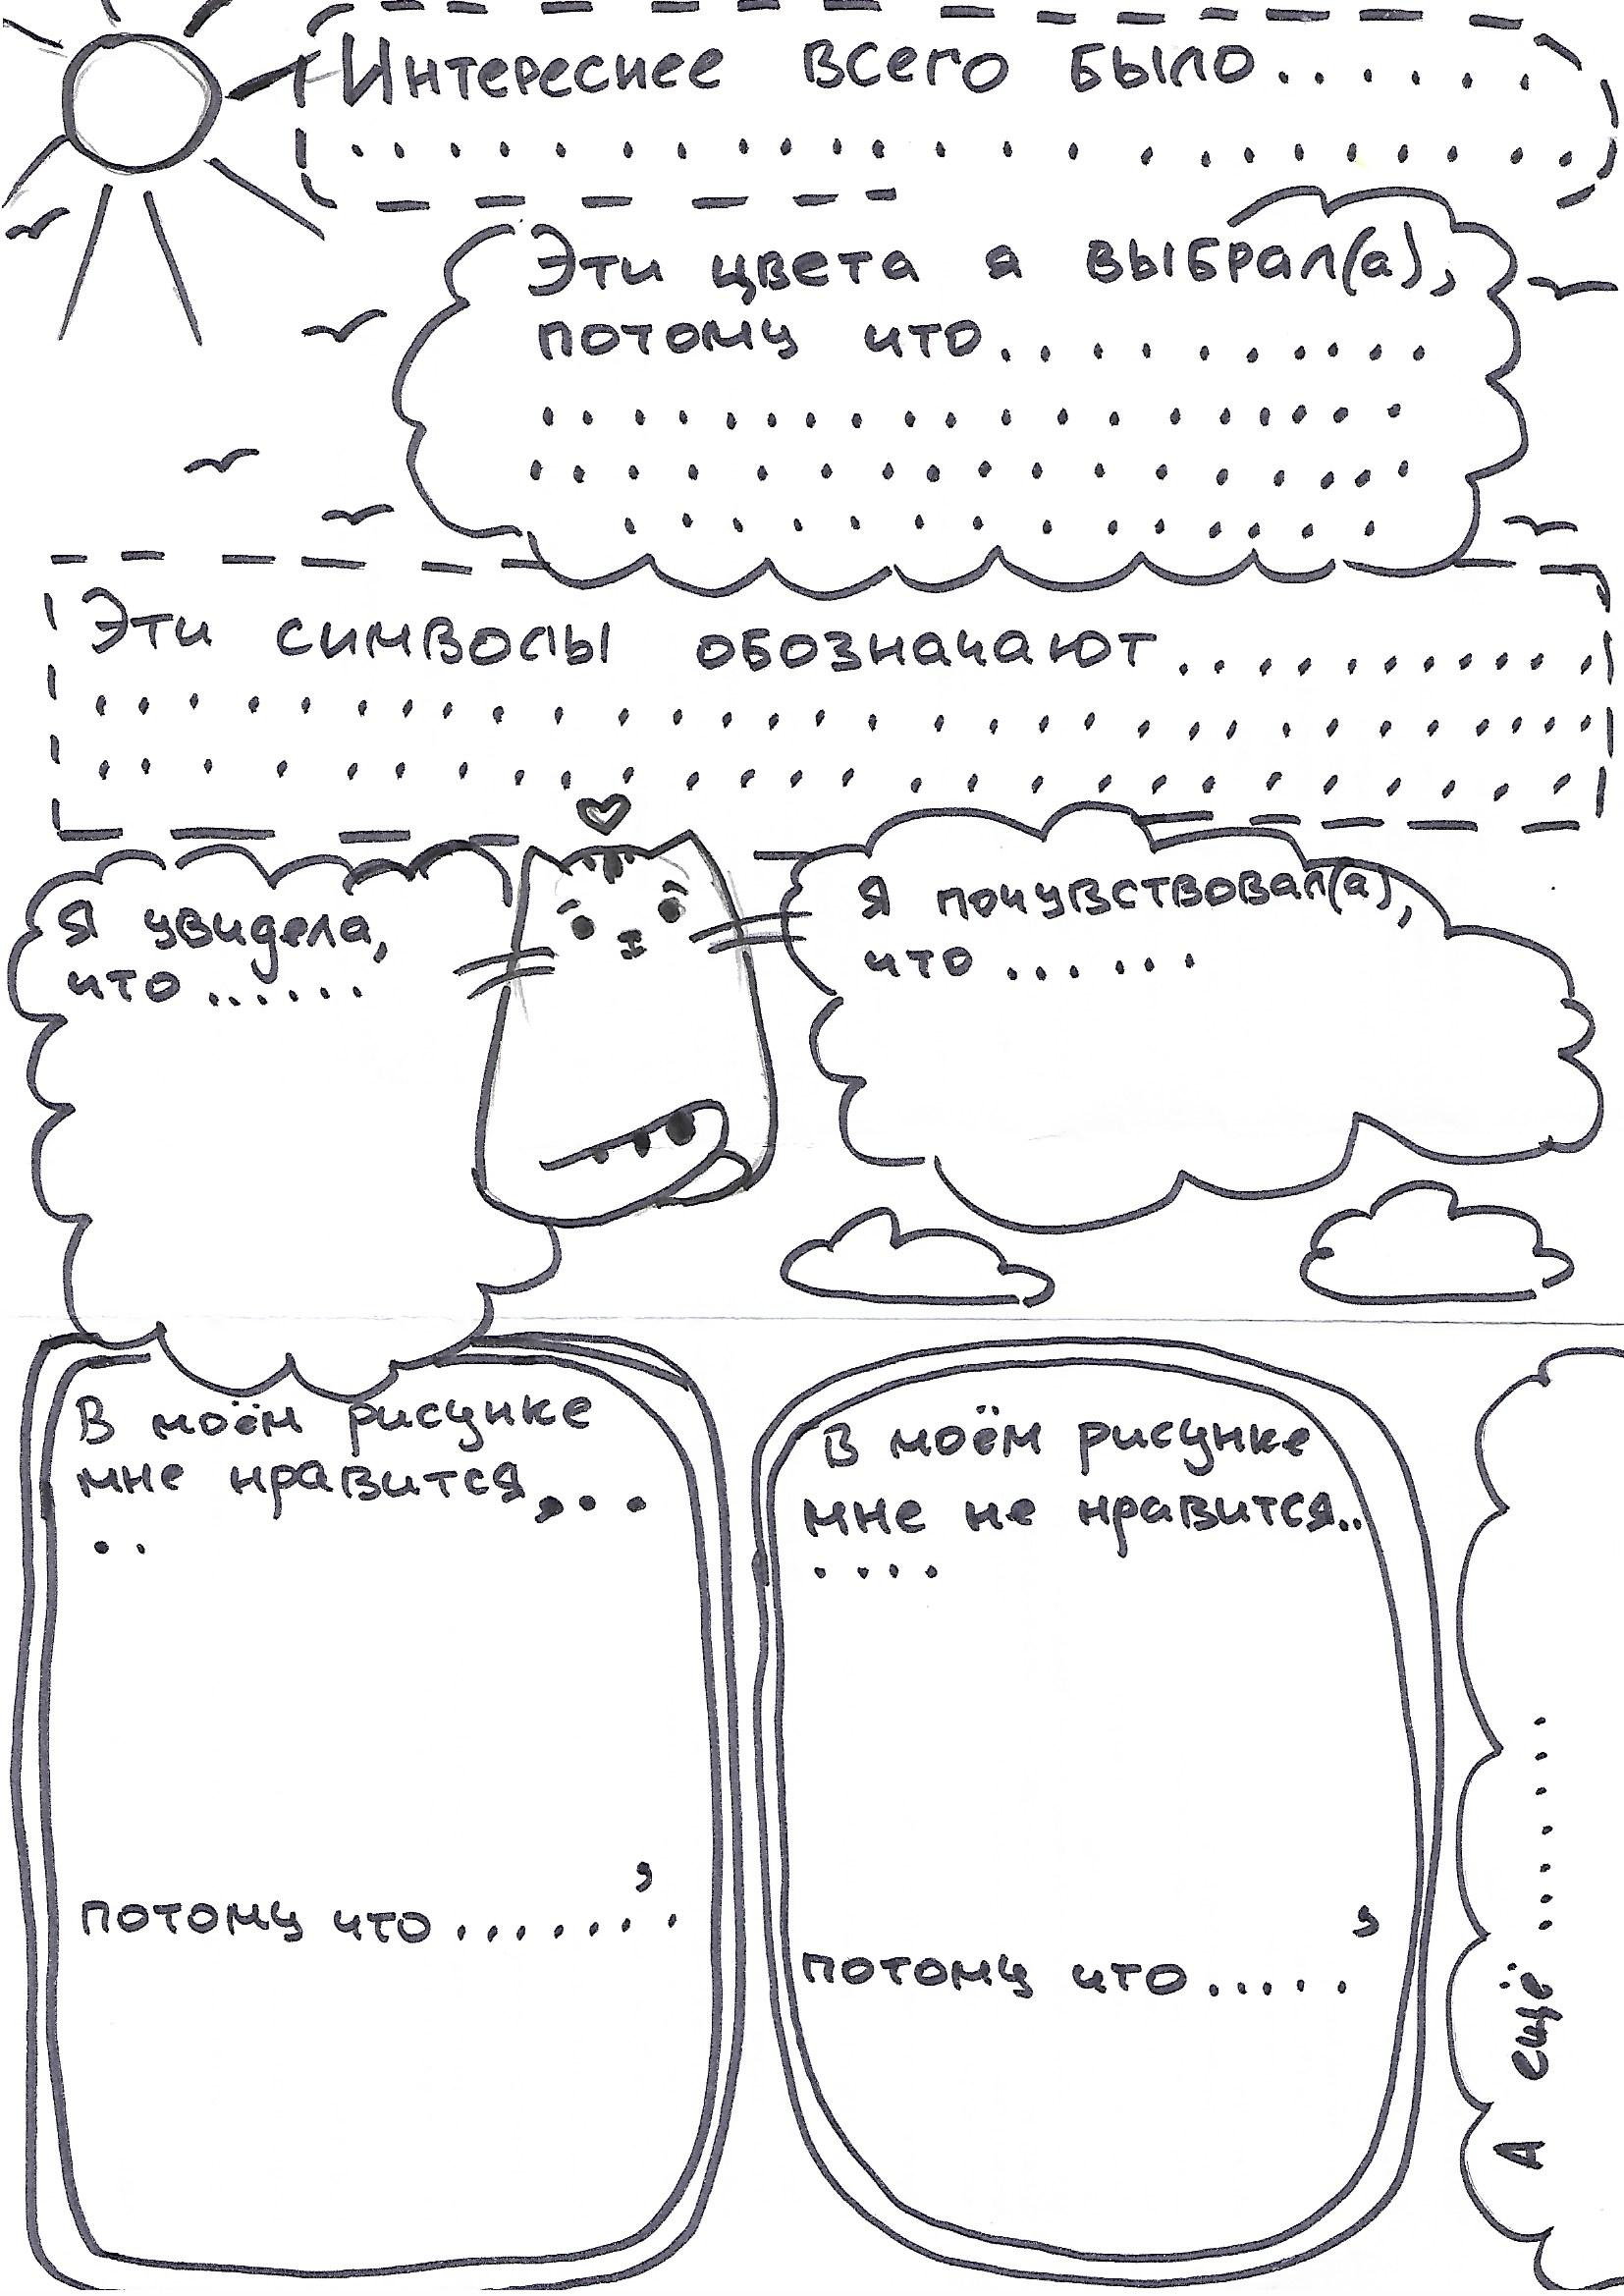 Интереснее всего было......
.........................
Эти цвета я выбрал(а),
потому что..........
.................
................
.............
Эти символы обозначают............
..............................
..........................
Я увидела,
что ......
Я почувствовал(а),
что ......
В моём рисунке
мне нравится,...
..
,
потому что.......
В моём рисунке
мне не нравится..
....
,
потому что.....
А ещё .......